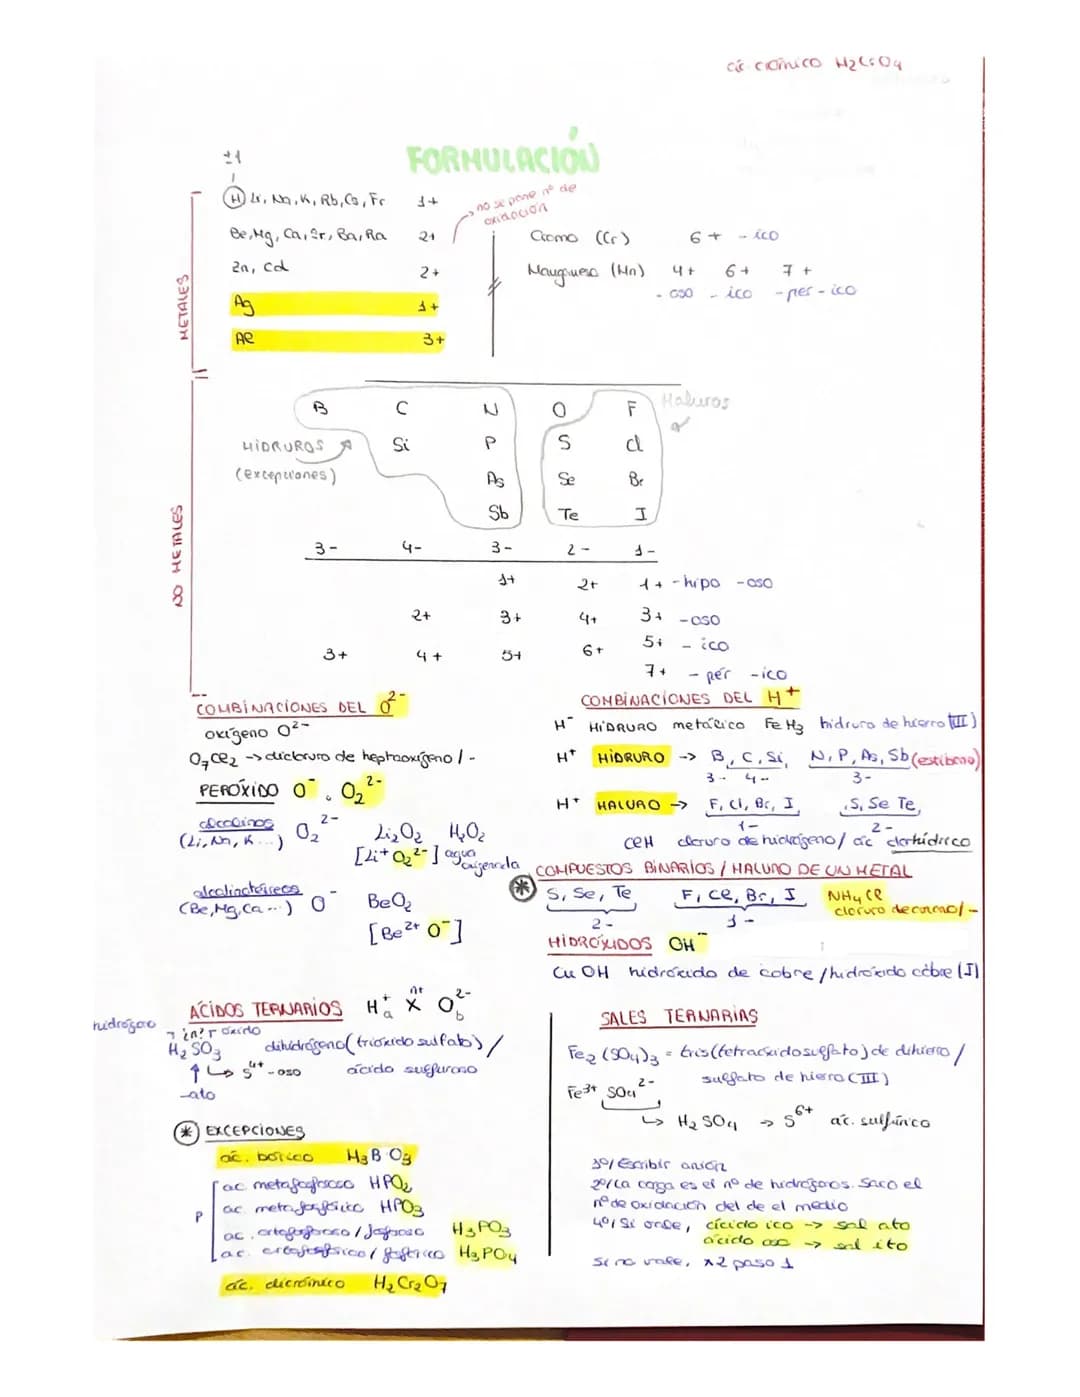 ác. crómico H2CrO4
FORMULACIÓN
±1
H Li, Na, K, Rb, Cs, Fr 1+
no se pone nº de oxidación
Be, Mg, Ca, Sr, Ba, Ra 2+
Zn, Cd 2+
Ag 1+
Al 3+
METALES
Cromo (Cr) 6+ -ico
Manganeso (Mn) 4+ 6+ 7+
-oso -ico -per-ico
NO METALES
B C N O F Haluros
HIDRUROS Si P S Cl
(excepciones) As Se Br
Sb Te I
3- 4- 3- 2- 1-
1+ 2+ 1+ -hipo -oso
2+ 3+ 4+ 3+ -oso
3+ 4+ 5+ 6+ 5+ -ico
7+ -per -ico
COMBINACIONES DEL O2-
oxígeno O2-
O7Cl2 -> dicloruro de heptaoxígeno / -
PERÓXIDO O-, O2 2-
alcalinos
(Li, Na, K...) O2 2- Li2O2 H2O2
[Li+ O2 2-] agua oxigenada
alcalinotérreos
(Be, Mg, Ca...) O- BeO2
[Be2+ O-]
COMBINACIONES DEL H+
H- HIDRURO metálico FeH3 hidruro de hierro (III)
H+ HIDRURO -> B, C, Si, N, P, As, Sb (estibano)
3- 4- 3-
H+ HALURO -> F, Cl, Br, I, S, Se Te,
1- 2-
ClH cloruro de hidrógeno / ác clorhídrico
COMPUESTOS BINARIOS / HALURO DE UN METAL
* S, Se, Te F, Cl, Br, I NH4Cl
2- 1- cloruro de /-
HIDRÓXIDOS OH-
CuOH hidróxido de cobre / hidróxido cobre (I)
ÁCIDOS TERNARIOS H+a Xn+ O2-b
hidrógeno
óxido
H2SO3 dihidrógeno (trióxido sulfato) /
S4+ -oso ácido sulfuroso
-ato
* EXCEPCIONES
ác. bórico H3BO3
P
ac metafosforoso HPO2
ac metafosfórico HPO3
ac. ortofosforoso / fosforoso H3PO3
ac. ortofosfórico / fosfórico H3PO4
ác. dicrómico H2Cr2O7
SALES TERNARIAS
Fe2(SO4)3 = tris(tetraoxidosulfato) de dihierro /
sulfato de hierro (III)
Fe3+ SO4 2-
-> H2SO4 -> S6+ ác. sulfúrico
1º/ Escribir anión
2º/ La carga es el nº de hidrógenos. Saco el
nº de oxidación del de el medio
4º/ Si vale, ácido ico -> sal ato
ácido oso -> sal ito
Si no vale, x2 paso 1